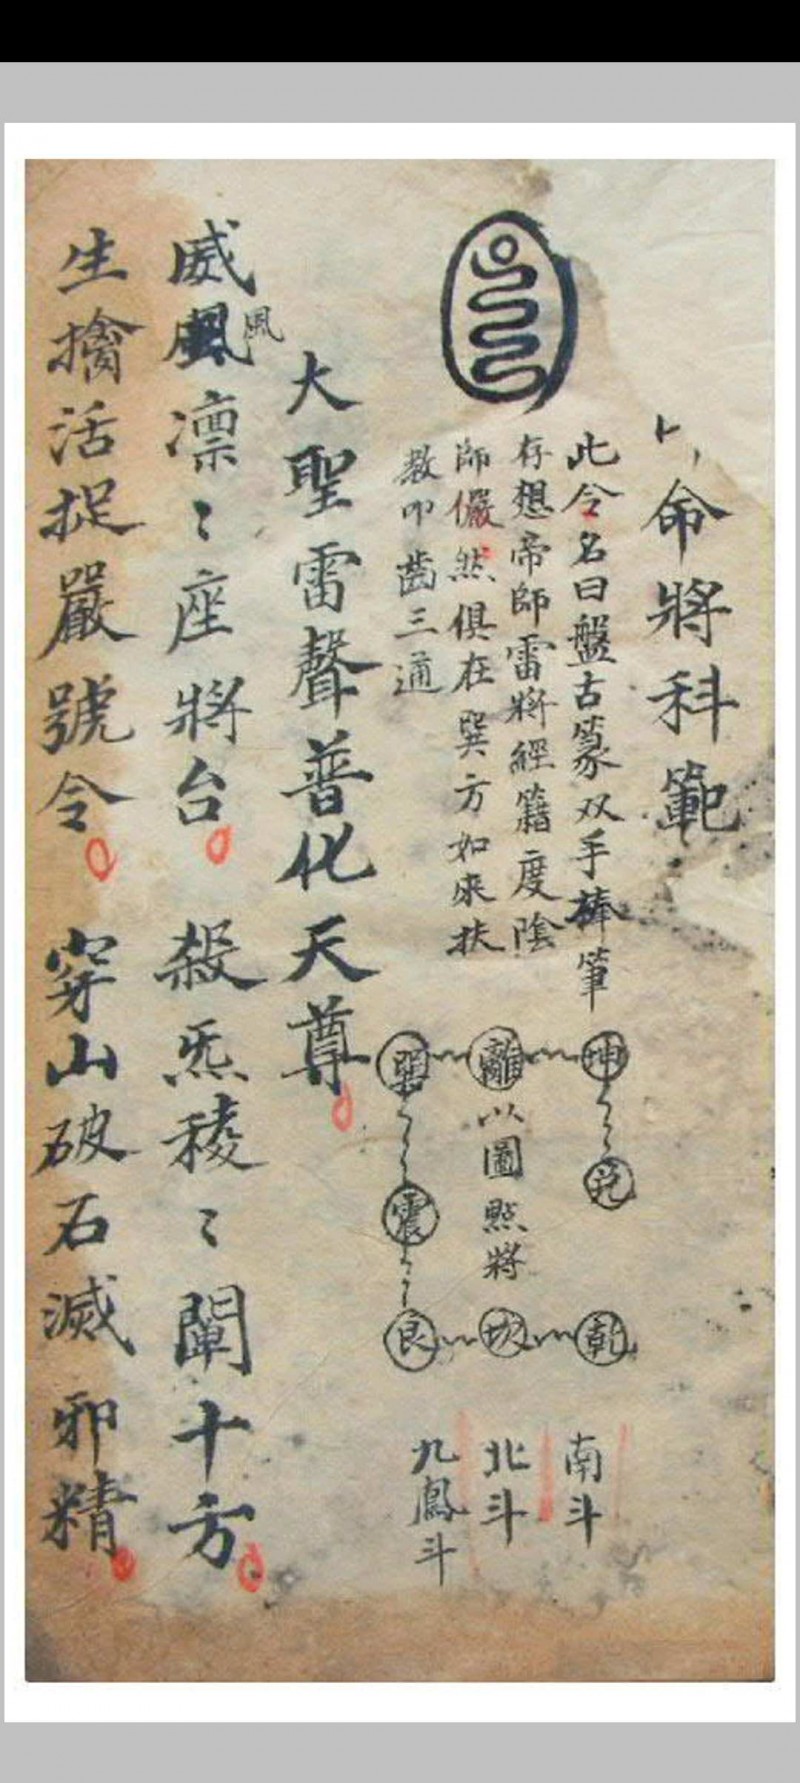 命將科範
此令名曰盤古篆双手捧筆
存想帝師雷將經籍度陰
師儼然俱在巽方如來扶
教叩齒三通
坤 兌 乾
離 以圖点將 坎
巽 震 艮
南斗
北斗
九鳳斗
大聖雷聲普化天尊
威風凛〻座將台 殺炁稜〻闡十方
風
生擒活捉嚴號令 穿山破石滅邪精